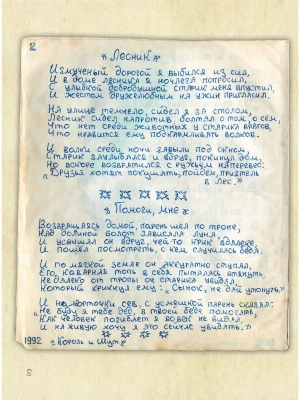 2
« Лесник »
Измученный дорогой я выбился из сил,
И в доме лесника я ночлега попросил,
С улыбкой добродушной старик меня впустил,
И жестом дружелюбным на ужин пригласил.
На улице темнело, сидел я за столом,
Лесник сидел напротив, болтал о том, о сём,
Что нет среди животных у старика врагов,
Что нравится ему подкармливать волков.
И волки среди ночи завыли под окном,
Старик заулыбался и вдруг, покинул дом,
Но вскоре возвратился с ружьём наперевес:
"Друзья хотят покушать, пойдём, приятель
в лес."
« Помоги, мне »
Возвращаясь домой, парень шёл по тропе,
Над долиной болот зависала луна,
И услышал он вдруг, чей-то крик вдалеке,
И пошёл посмотреть, с кем случилась беда.
И по мягкой земле он аккуратно ступал,
Его, коварная топь в себя пыталась втянуть,
Недалеко от тропы он старика увидал,
Который крикнул ему: „Сынок, не дай утонуть."
И на корточки сев, с усмешкой парень сказал:
"Не в силах я тебе дед, в твоей беде помогать,
Как человек погибает я вовек не видал,
И наживую хочу я это сейчас увидать."
1992 „Король и Шут"
8